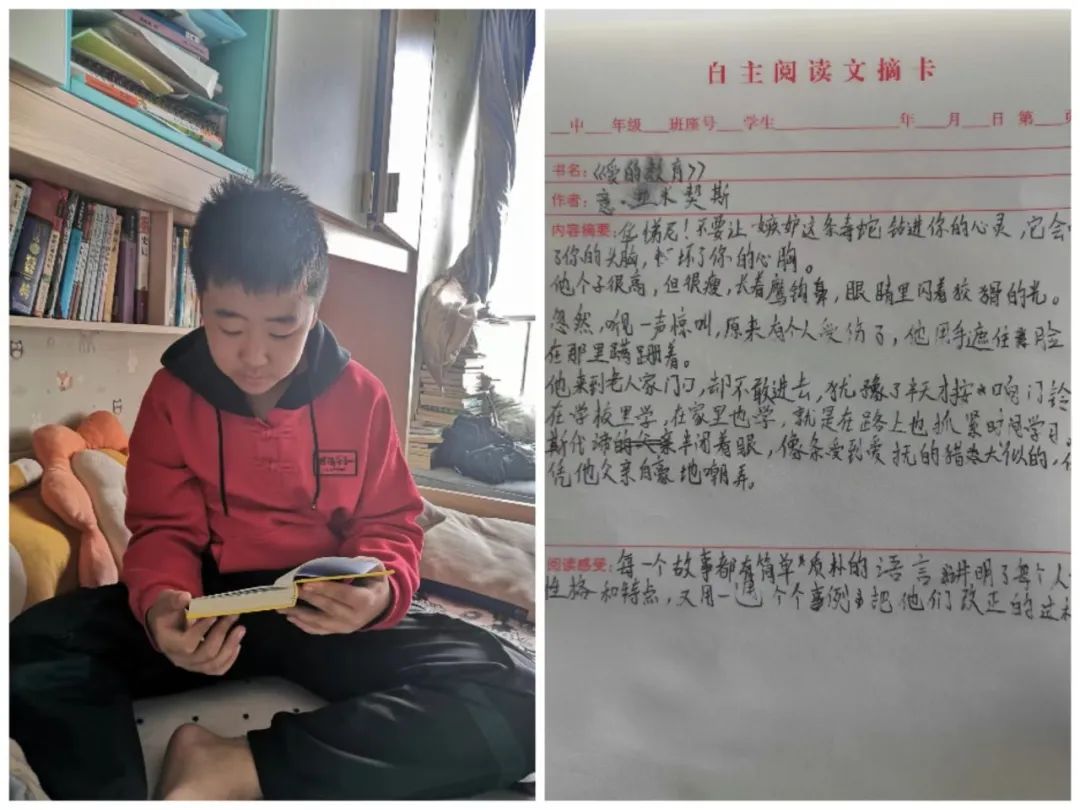 史记
自主阅读文摘卡
中 年级 班座号 学生 年 月 日 第 页
书名：《爱的教育》
作者：意·亚米契斯
内容摘要：华梯尼！不要让嫉妒这条毒蛇钻进你的心灵，它会
了你的头脑，坏了你的心胸。
他个子很高，但很瘦，长着鹰钩鼻，眼睛里闪着狡猾的光。
忽然，哦一声惊叫，原来有个人受伤了，他用手遮住脸
在那里蹒跚着。
他来到老人家门了，却不敢进去，犹豫了半天才按响门铃
在学校里学，在家里也学，就是在路上也抓紧时间学习。
斯代 半闭着眼，像条受到爱抚的猎犬似的，任
凭他父亲自豪地嘲弄。
阅读感受：每一个故事都有简单质朴的语言讲明了每个人
性格和特点，又用一 个个事例把他们改正的过